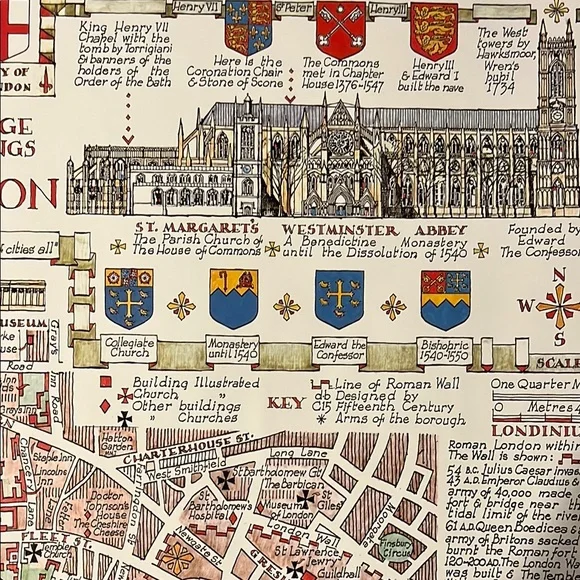 Henry VII
St Peter
Henry III
King Henry VII
Chapel with the
tomb by Torrigiani
& banners of the
holders of the
Order of the Bath
Here is the
Coronation Chair
& Stone of Scone
The Commons
met in Chapter
House 1376-1547
Henry III
& Edward I
built the nave
The West
towers by
Hawksmoor,
Wren's
pupil
1734
Y OF
NDON
GE
NGS
ON
ST. MARGARET'S WESTMINSTER ABBEY
The Parish Church of
The House of Commons
A Benedictine Monastery
until the Dissolution of 1540
Founded by
Edward
The Confessor
cities all"
USEUM
rke
use
Grays
Road
Collegiate
Church
Monastery
until 1540
Edward the
Confessor
Bishopric
1540-1550
N
W E
S
SCALE
Building Illustrated
Church "
Other buildings
" Churches
KEY
Line of Roman Wall
db Designed by
C15 Fifteenth Century
Arms of the borough
One Quarter M
0 Metres
LONDINIU
Roman London within
The Wall is shown:
54 B.C. Julius Caesar invas
43 A.D. Emperor Claudius &
army of 40,000 made
fort & bridge near th
tidal limit of the rive
61 A.D. Queen Boedicea &
army of Britons sacked
burnt the Roman fort
120-200 A.D. The London Wa
was built & The Temple
Inn Road
Grays Inn
Hatton
Garden
CHARTERHOUSE ST.
West Smithfield
Long Lane
St Bartholomew Gt.
The Barbican
Museum
of London
St
Giles
Staple Inn
Lincolns
Inn
Chancery Lane
Fetter
Doctor
Johnson's
House
The Cheshire
Cheese
St
Bartholomew's
Hospital
London Wall
Moorgate
Finsbury
Circus
FLEET ST.
Temple
Church
Newgate St
GRES
St Lawrence
Jewry
Guildhall